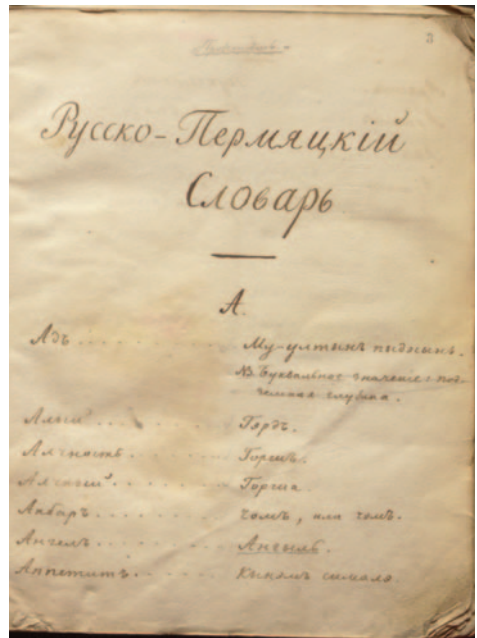 3
Русско-Пермяцкій
Словарь
А.
Адъ . . . . . . . . . . Му-ултынъ пыднынъ.
NB Буквальное значеніе: под-
земная глубина.
Алый . . . . . . . . . Гордъ.
Алчность . . . . . . .
Алчный . . . . . . . .
Амбаръ . . . . . . . . Чомъ, или чомъ.
Ангелъ . . . . . . . . Ангылъ.
Аппетитъ . . . . . . . Кынӧмъ